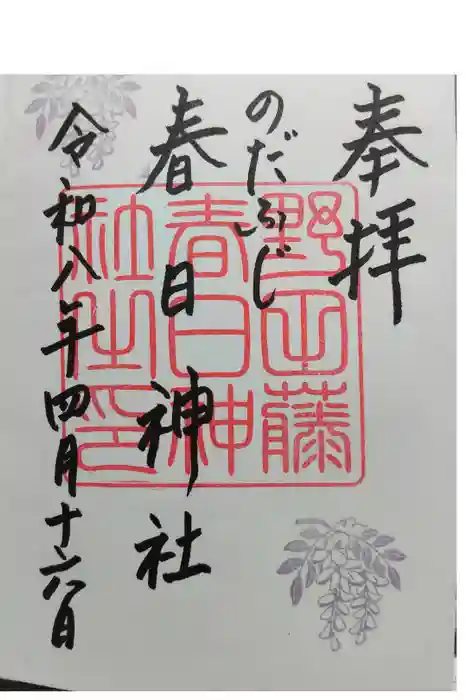 奉拝
のだふじ
春日神社
令和八年四月十六日
野田藤
春日神
社之印